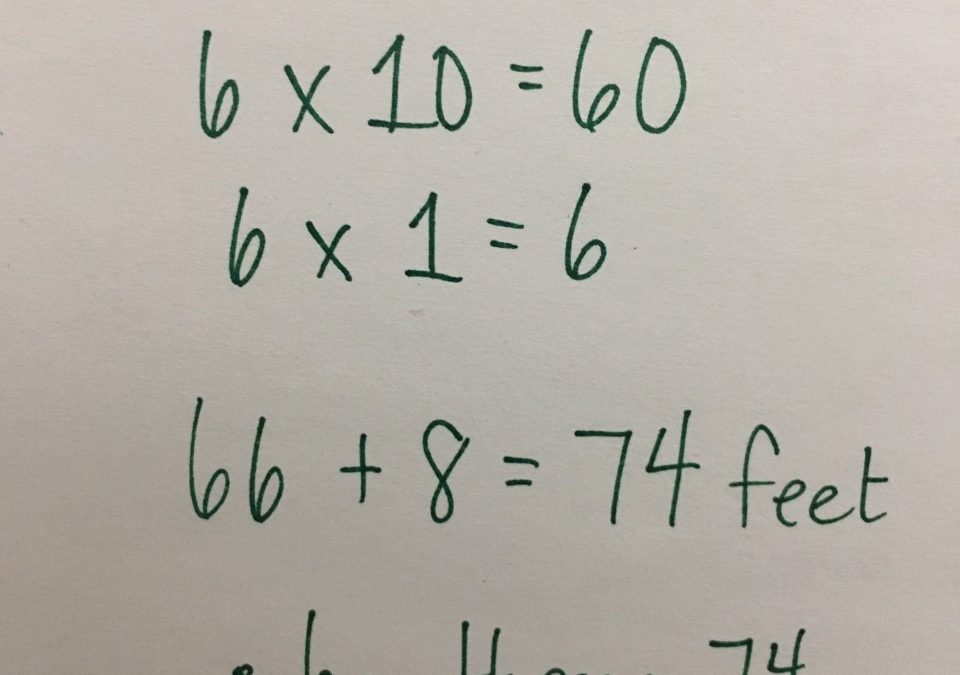 6 x 10 = 60
6 x 1 = 6
66 + 8 = 74 feet
74